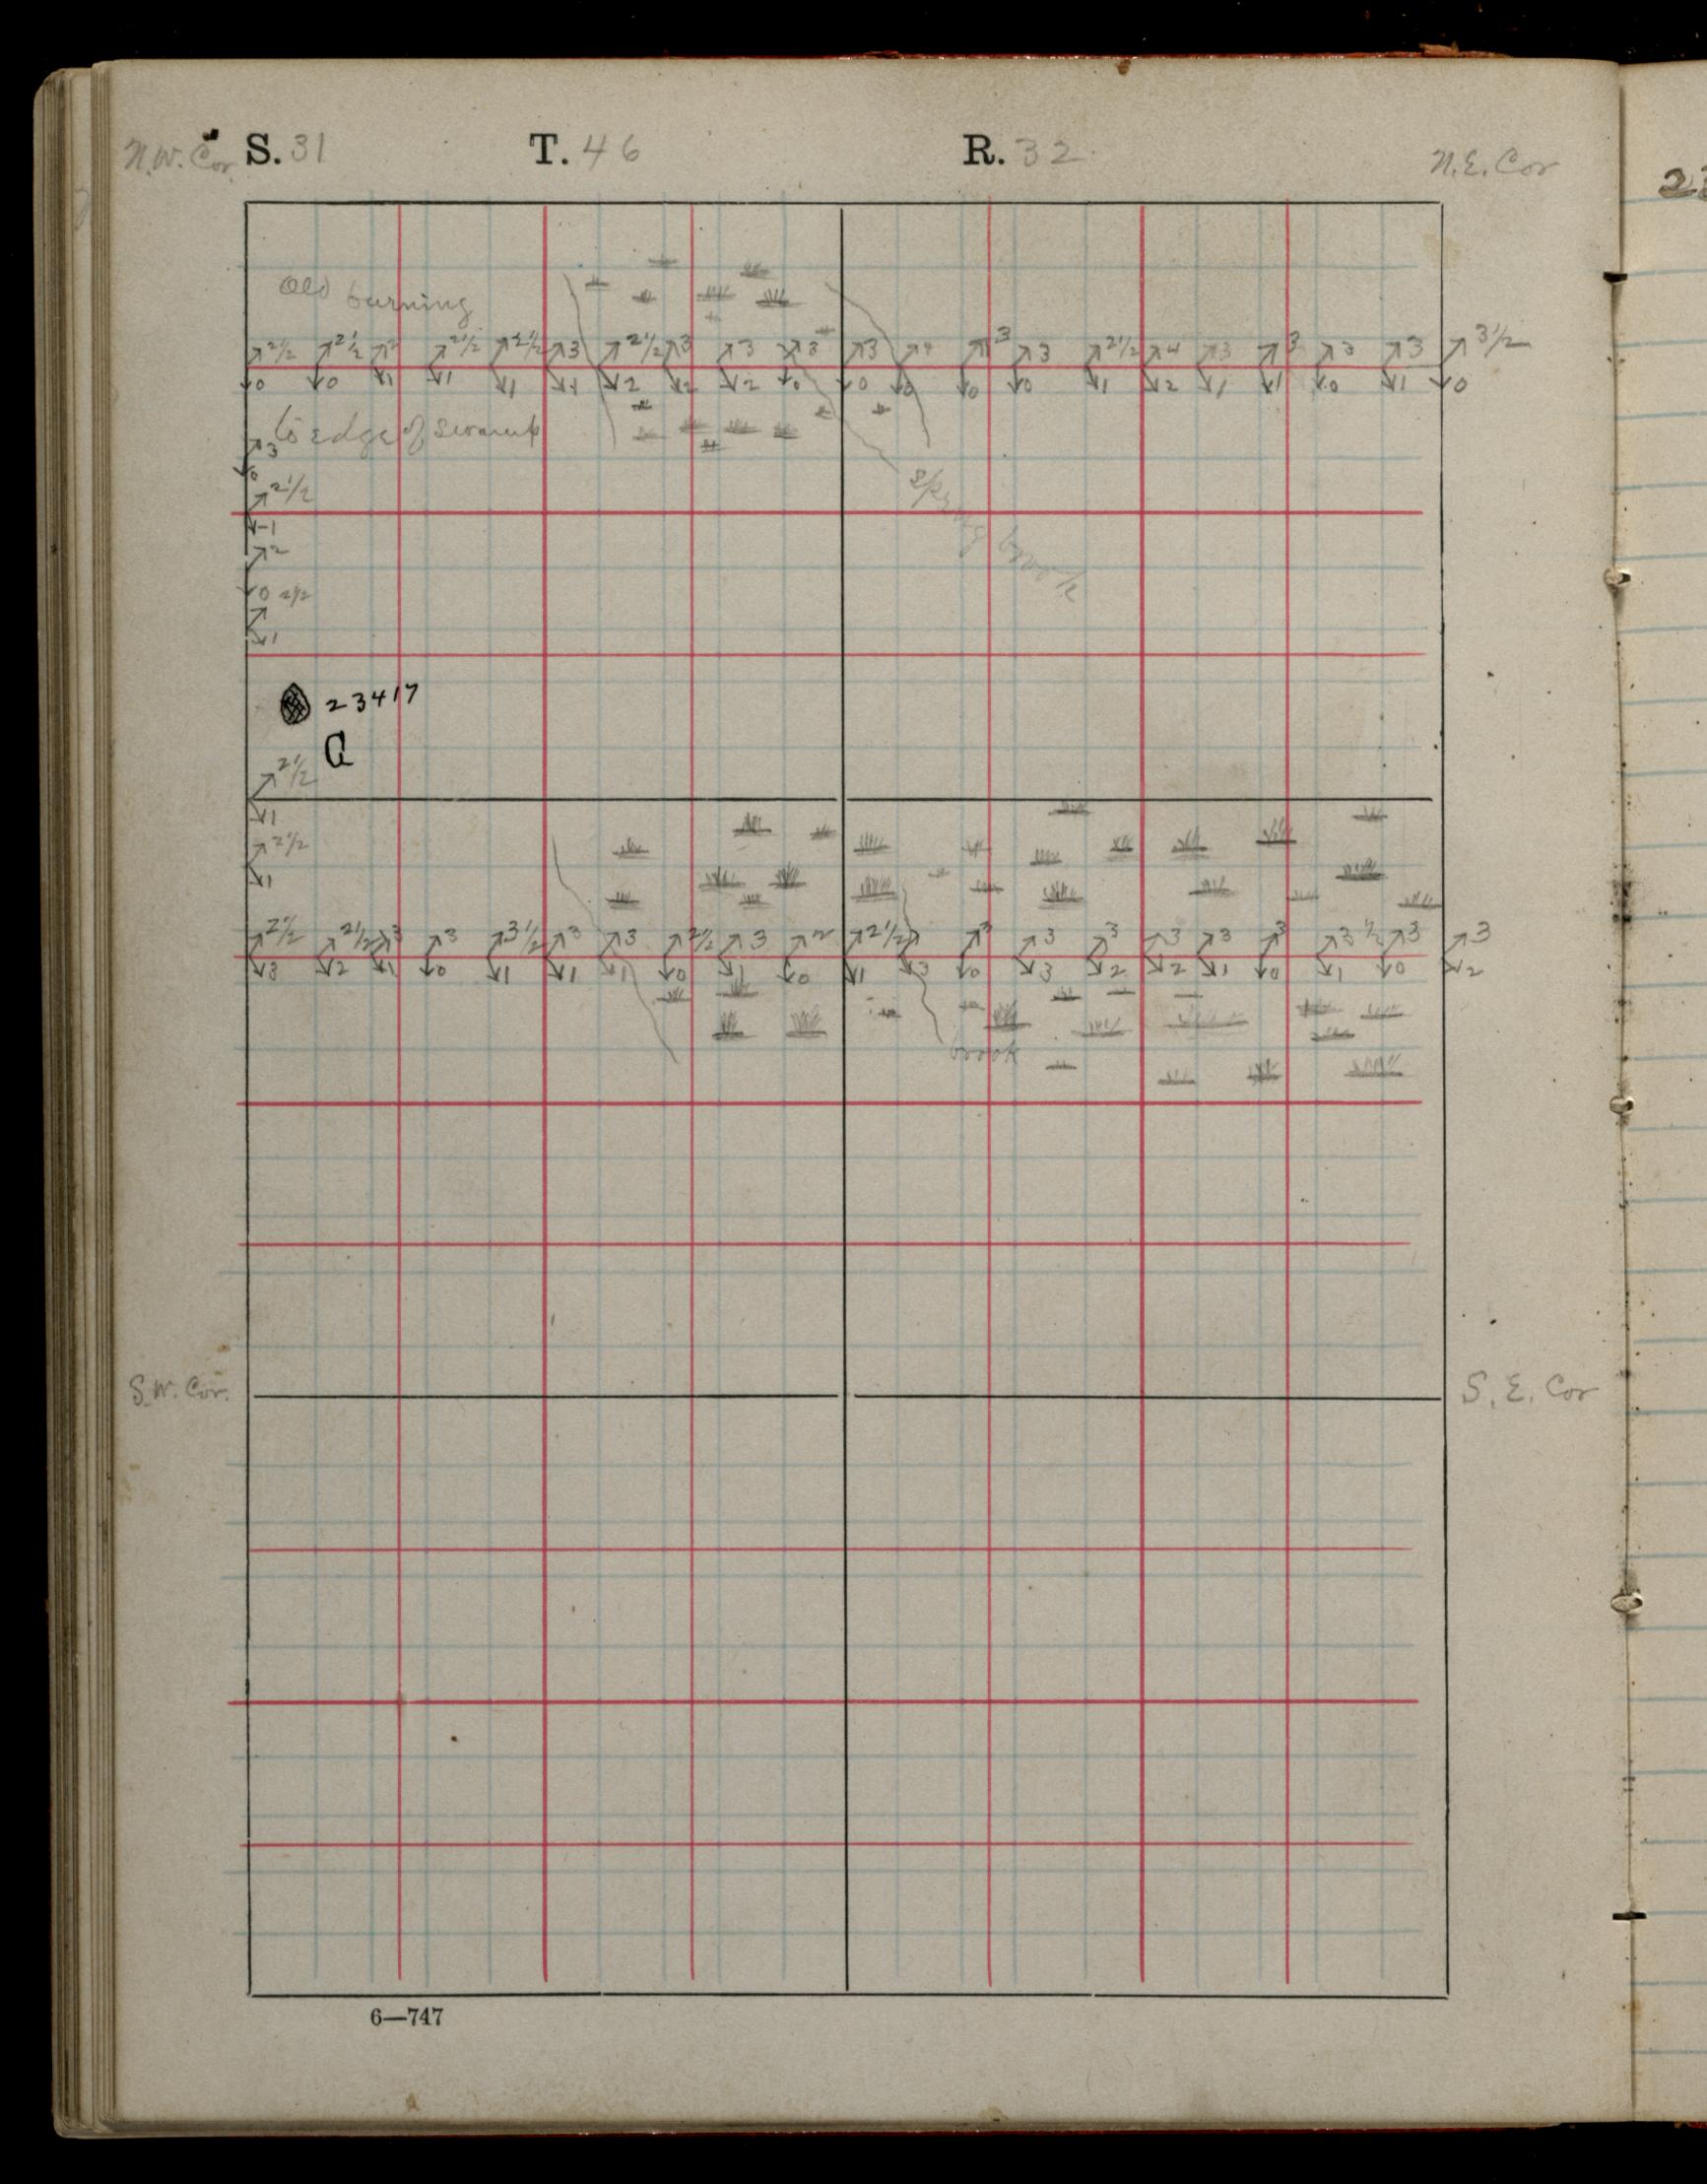 N.W. Cor. S. 31 T. 46 R. 32 N.E. Cor
Old burning
2 1/2 2 1/2 2 2 1/2 2 1/2 3 2 1/2 3 3 3 3 4 3 3 2 1/2 4 3 3 3 3 3 1/2
0 0 1 1 1 1 2 2 2 0 0 0 0 0 1 2 1 1 0 1 0
to edge of swamp
3
0
2 1/2
1
2
spring brook
0 2 1/2
1
23417
a
2 1/2
1
2 1/2
1
2 1/2 2 1/2 3 3 3 1/2 3 3 2 1/2 3 2 2 1/2 3 3 3 3 3 3 3 1/2 3 3
3 2 1 0 1 1 1 0 1 0 1 3 0 3 2 2 1 0 1 0 2
brook
S.W. Cor. S. E. Cor
6—747